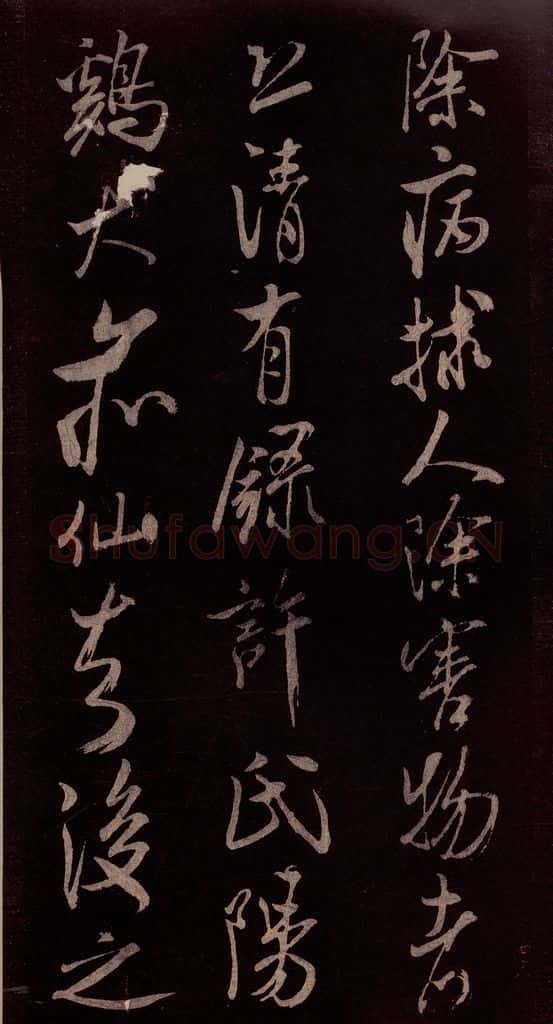 除病捄人除害物者
上清有錄許氏陽
鷄犬亦仙去後之
Shufawang.CN